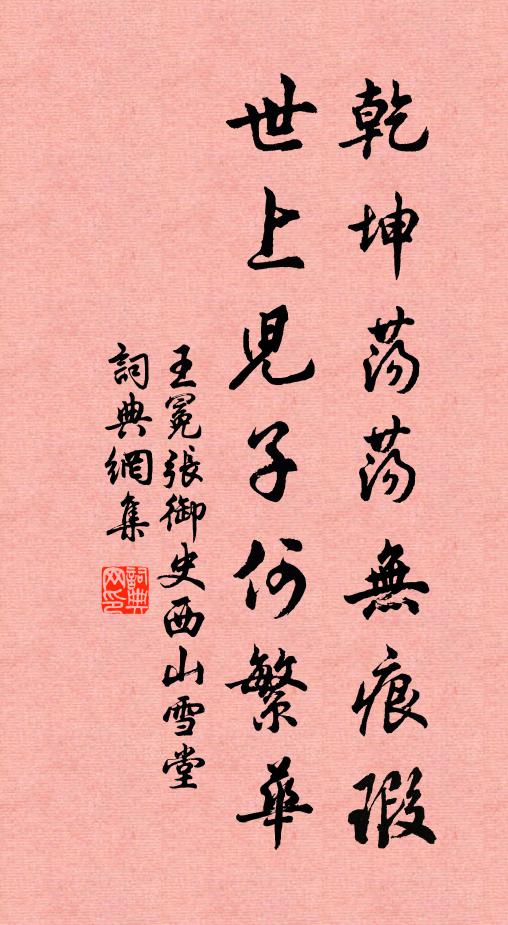 乾坤蕩蕩無痕瑕
世上兒子何繁華
王冕張御史西山雪堂
詞典網集
詞典网印